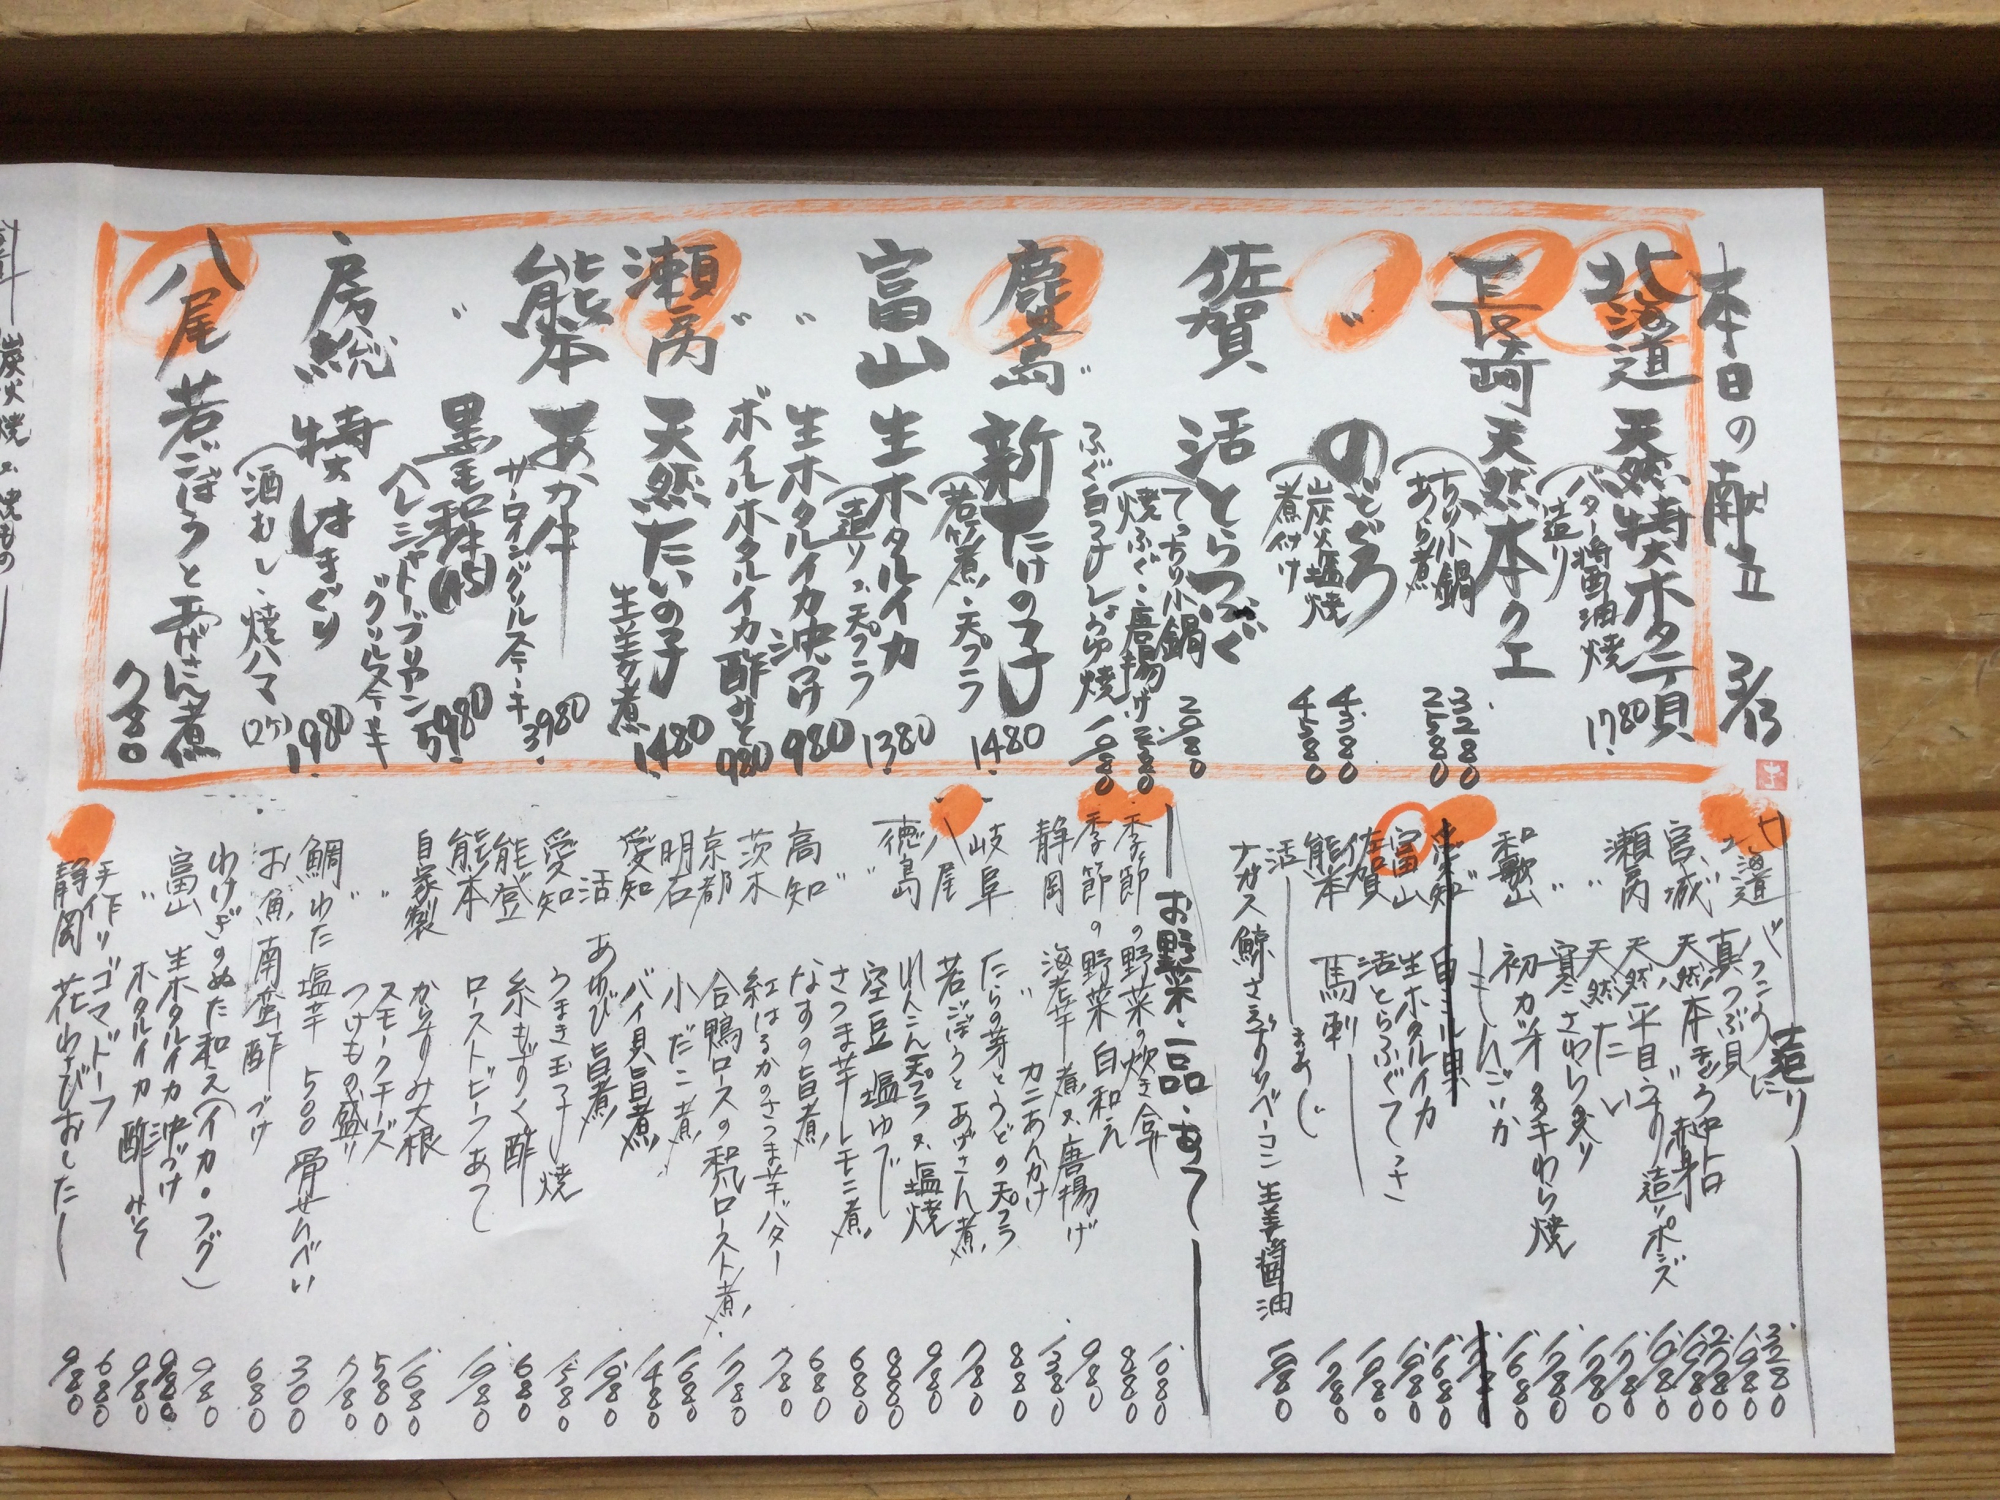 本日の献立 3/13
北海道 天然特大ホタテ貝 1780
バター醤油焼
造り
長崎 天然本クエ
ちり小鍋 3280
あら煮 2580
〃 のどぐろ
炭火塩焼 4380
煮付け 4580
佐賀 活とらふぐ
てっちり小鍋 2980
焼ふぐ・唐揚げ
〃 ふぐ白子しょうゆ焼
鹿児島 新たけの子 1480
若竹煮・天プラ
富山 生ホタルイカ 1380
造り又天プラ
〃 生ホタルイカ沖づけ 980
〃 ボイルホタルイカ酢みそ 980
瀬戸内 天然たいの子 生姜煮 1480
熊本 あか牛 3980
サーロイングリルステーキ
〃 黒毛和牛(A5) 5980
ヘレシャトーブリアン
グリルステーキ
房総 特大はまぐり 1980
(酒むし・焼ハマ) (2ケ)
八尾 若ごぼうと揚げさん煮 780
造り
北海道 バフンうに 3280
〃 真つぶ貝 1980
宮城 天然本まぐろ中トロ 2780
〃 〃 赤身 1980
瀬戸内 天然平目うす造りポンズ 1980
〃 天然たい 1780
〃 寒さわら炙り 1780
和歌山 初カツオのわら焼 1680
〃 しんこいか
愛知
富山 生ホタルイカ 1680
佐賀 活とらふぐてっさ 1980
熊本 馬刺し 1980
活 まあじ 1780
ナガス鯨さえずりベーコン 生姜醤油 1980
お野菜・一品・あて
季節の野菜の炊き合せ 1080
季節の野菜 白和え 880
静岡 海老芋煮又唐揚げ 980
〃 カニあんかけ 1380
岐阜 たらの芽とうどの天プラ 880
八尾 若ごぼうとあげさん煮 780
〃 れんこん天プラ又塩焼 980
徳島 空豆塩ゆで 880
〃 さつま芋レモン煮 680
高知 なすの旨煮 680
茨木 紅はるかのさつま芋バター 780
京都 合鴨ロースの和風ロースト煮 1780
明石 小だこ煮 1680
愛知 バイ貝旨煮 1480
活 あわび旨煮 1980
愛知 うまき玉子焼 1580
能登 糸もずく酢 680
熊本 ローストビーフあて 1980
自家製 からすみ大根 1680
〃 スモークチーズ 580
〃 つけもの盛り 780
鯛わた塩辛 500 骨せんべい 300
お魚南蛮酢づけ 680
わけぎのぬた和え(イカ・フグ) 980
富山 生ホタルイカ沖づけ 980
〃 ホタルイカ酢みそ 980
手作りゴマドーフ 680
静岡 花わさびおしたし 980
炭火焼又焼もの